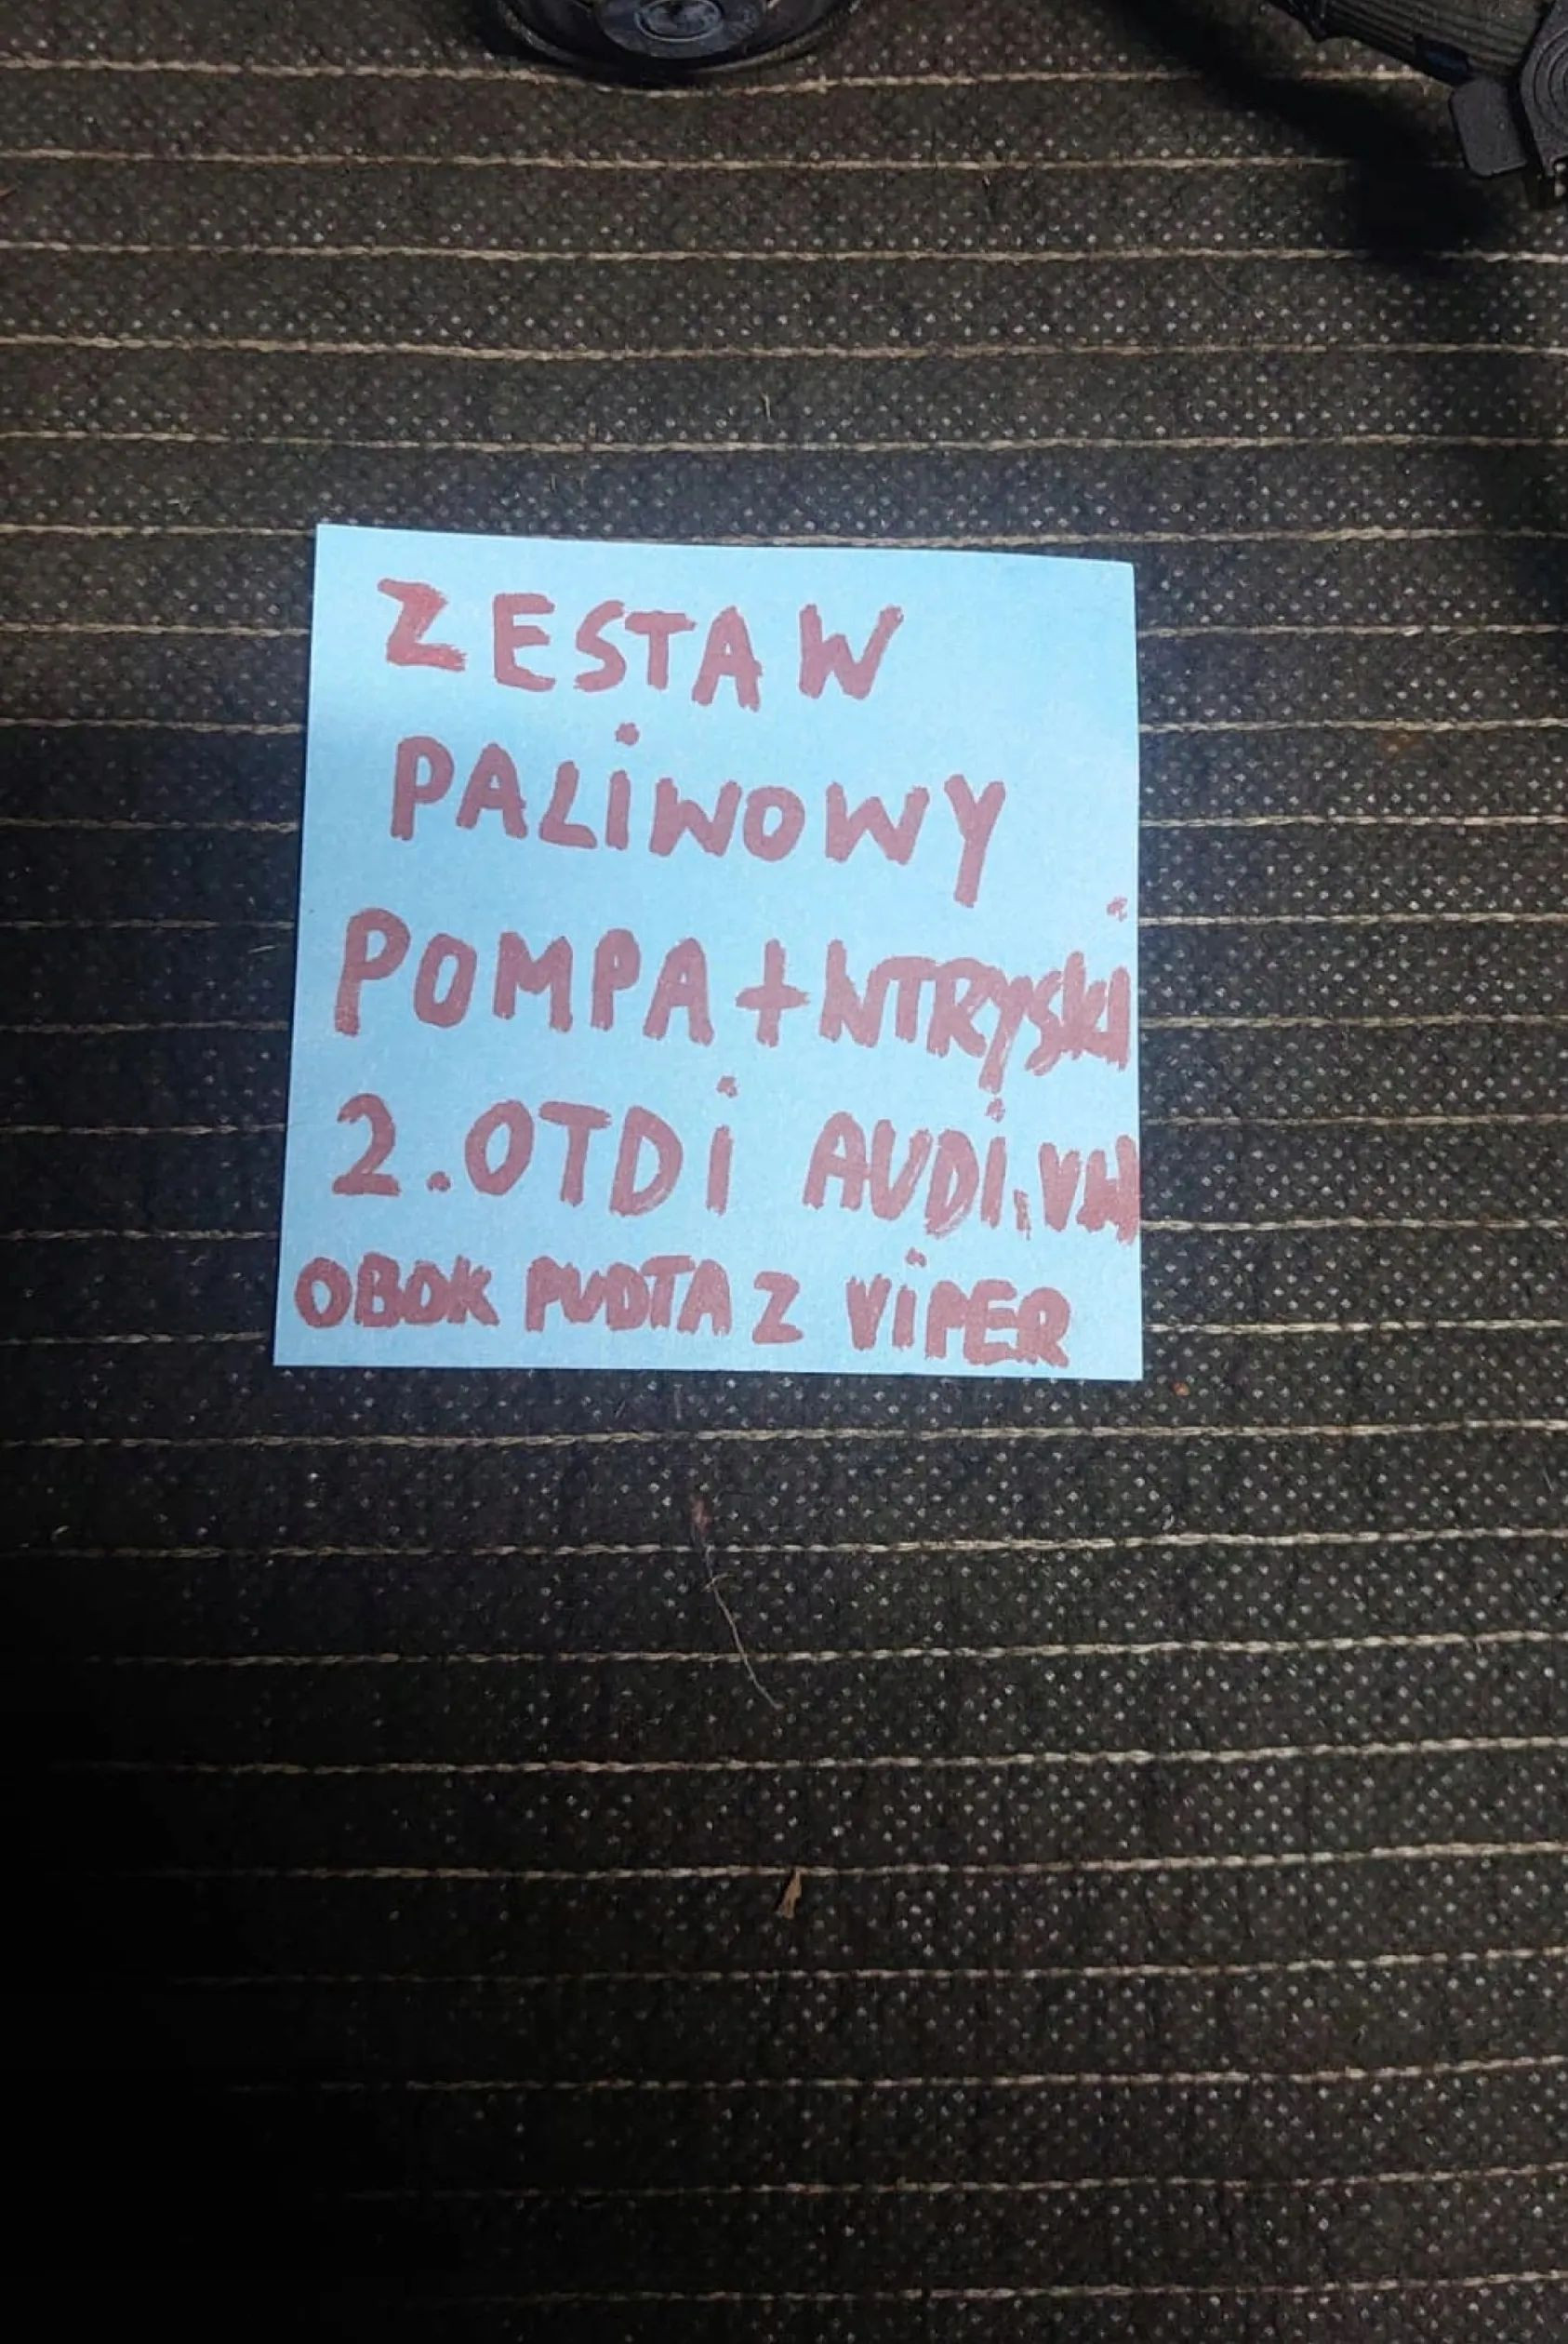 ZESTAW
PALiWOWY
POMPA+WTRYSKi
2.0TDi AUDi.VW
OBOK PUDŁA Z ViPER